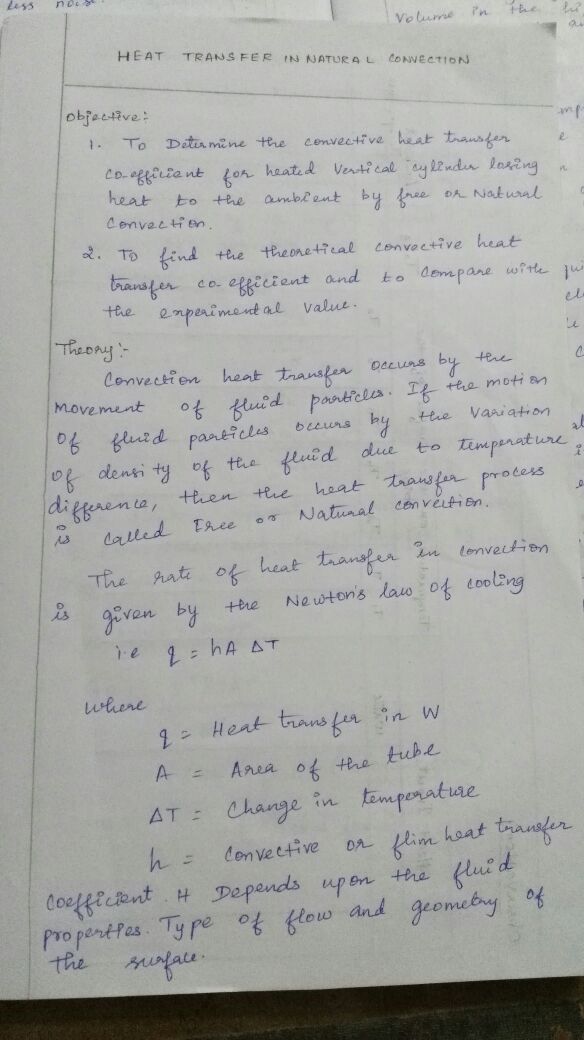 less nois
Volume in the
HEAT TRANSFER IN NATURAL CONVECTION
Objective:
1. To Determine the convective heat transfer
co-efficient for heated Vertical cylinder losing
heat to the ambient by free or Natural
Convection.
2. To find the theoretical convective heat
transfer co-efficient and to compare with
the experimental value.
Theory:-
Convection heat transfer occurs by the
movement of fluid particles. If the motion
of fluid particles occurs by the Variation
of density of the fluid due to temperature
difference, then the heat transfer process
is called Free or Natural convection.
The rate of heat transfer in convection
is given by the Newton's law of cooling
i.e q = hA ΔT
Where
q = Heat transfer in W
A = Area of the tube
ΔT = Change in temperature
h = Convective or flim heat transfer
Coefficient. H Depends upon the fluid
properties. Type of flow and geometry of
the surface.